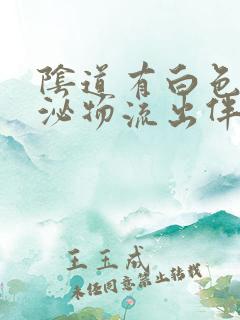 陰道有白色
泌物流出伴
王玉成
未经同意禁止转载